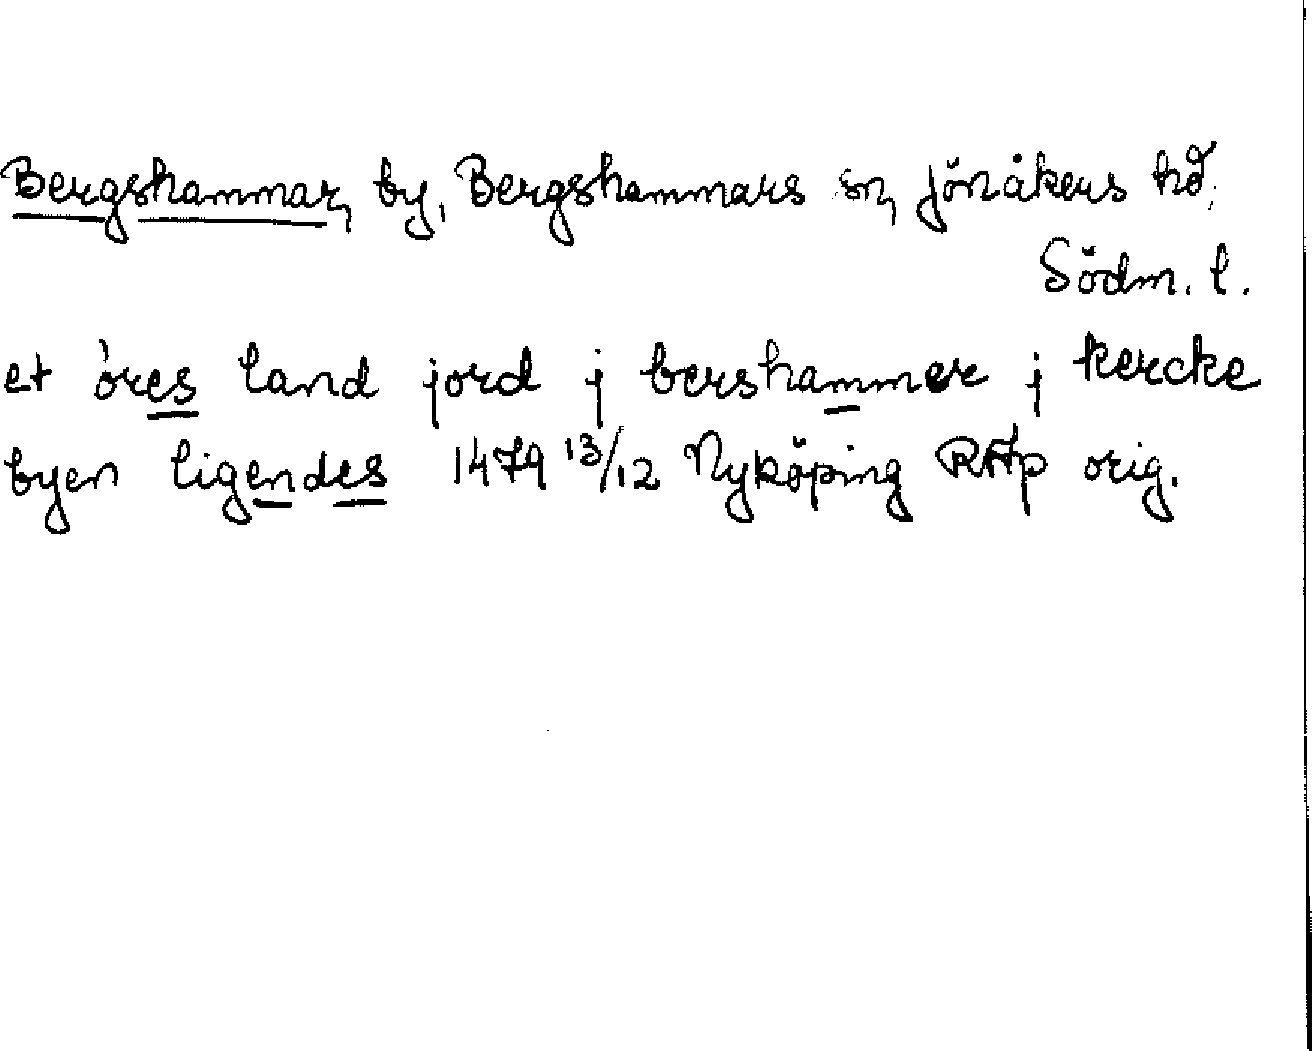 Bergshammar, by, Bergshammars sn, Jönåkers hd,
Södm. l.
et öres land jord j bershammer j kercke
byen ligendes 1479 13/12 Nyköping RAp orig.